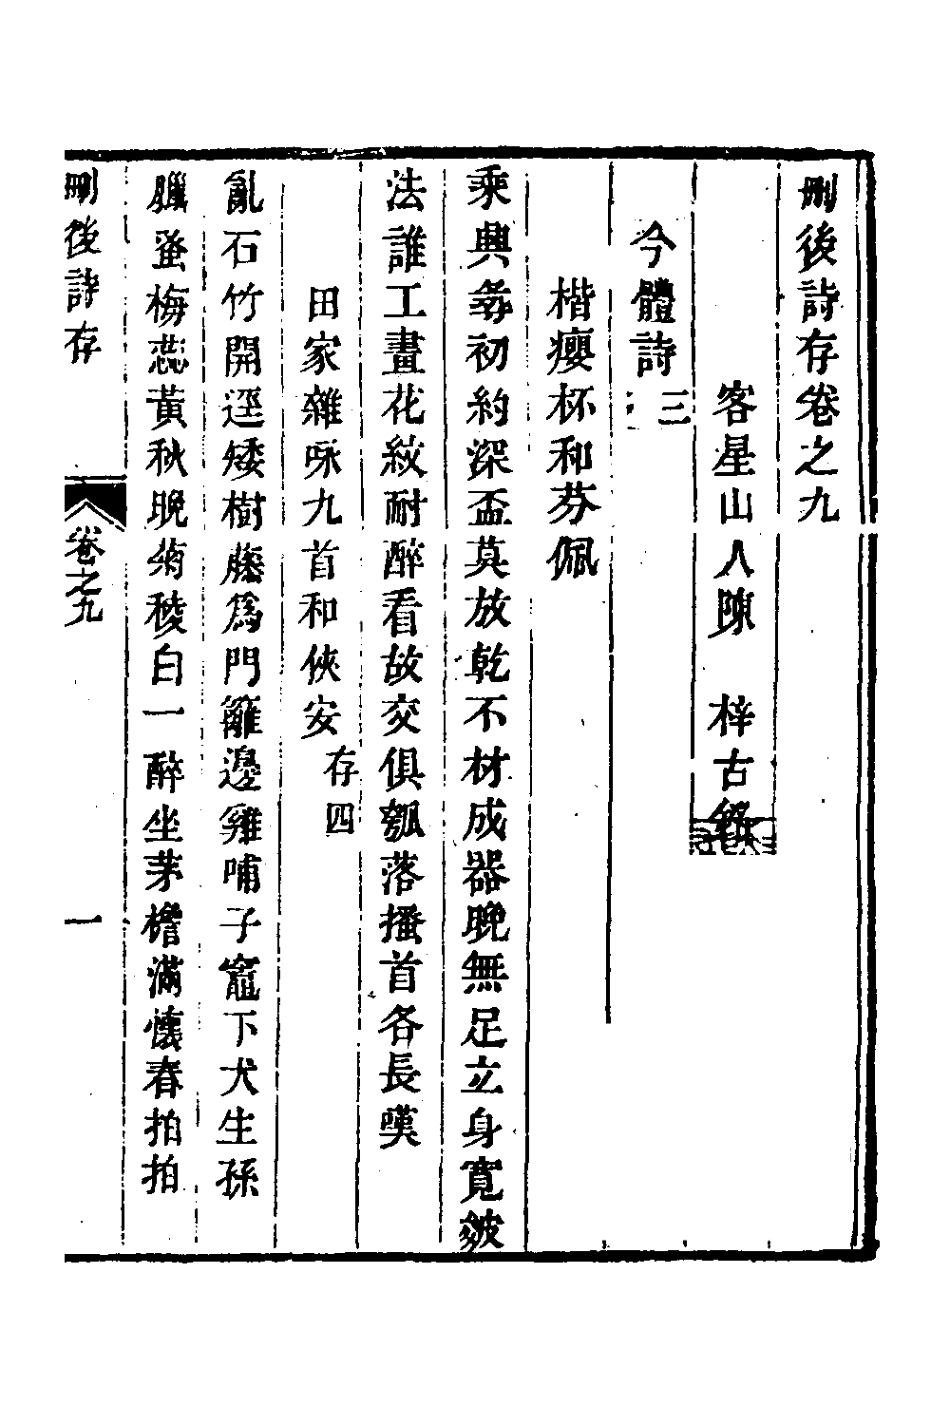 刪後詩存卷之九
客星山人陳　梓古銘
今體詩三
楷癭杯和芬佩
乘興彝初約深盃莫放乾不材成器晚無足立身寬皴
法誰工畫花紋耐醉看故交俱瓠落搔首各長嘆
田家雜咏九首和俠安存四
亂石竹開逕矮樹藤爲門籬邊雞哺子竈下犬生孫
臘蚤梅蕊黃秋晚菊稜白一醉坐茅檐滿懷春拍拍
刪後詩存
卷之九
一